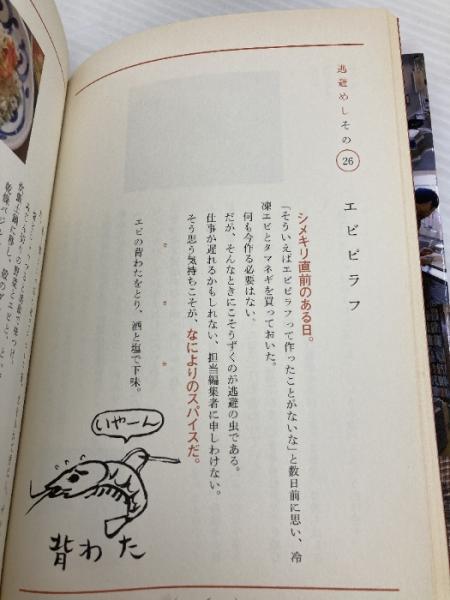 逃避めしその26
エビピラフ
シメキリ直前のある日。
「そういえばエビピラフって作ったことがないな」と数日前に思い、冷
凍エビとタマネギを買っておいた。
何も今作る必要はない。
だが、そんなときにこそうずくのが逃避の虫である。
仕事が遅れるかもしれない、担当編集者に申しわけない。
そう思う気持ちこそが、なによりのスパイスだ。
エビの背わたをとり、酒と塩で下味。
いやーん
背わた